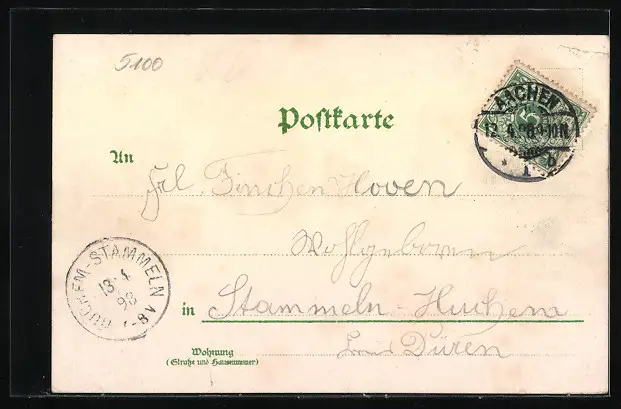 5100
Postkarte
AACHEN
12 4 98 9-10N
* 1 b
An
Frl. Finchen Hoven
Wohlgeboren
BUCHEM-STAMMELN
13 4
98
7-8V
in Stammeln-Huchem
Düren
Wohnung
(Straße und Hausnummer)